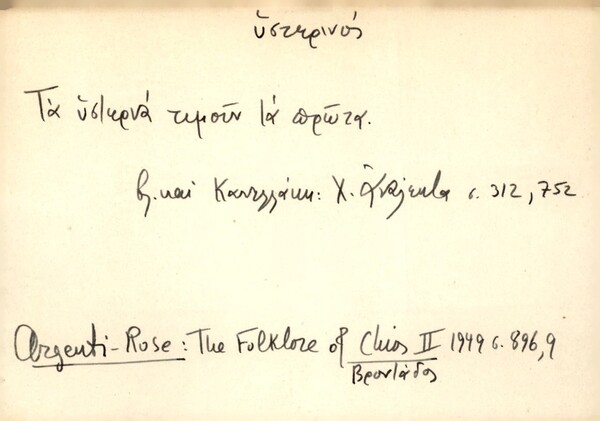 ὑστερινός
Τὰ ὑστερνά τιμοῦν τά πρῶτα.
βλ. καί Κανελλάκη: Χ. Ἀνάλεκτα σ. 312, 752
Argenti-Rose: The Folklore of Chios II 1949 σ. 896,9
Βροντάδος